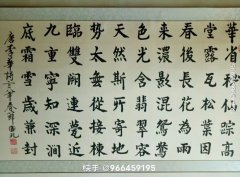 華省秘仙踪高
堂露瓦松葉因
春後長花為雨
來濃影混鴛鴦
色光含翡翠容
天然斯所寄地
勢太無從接棟
臨雙闕連甍近
九重寧知深澗
底霜雪歲兼封
唐李華詩
快手 @966459195